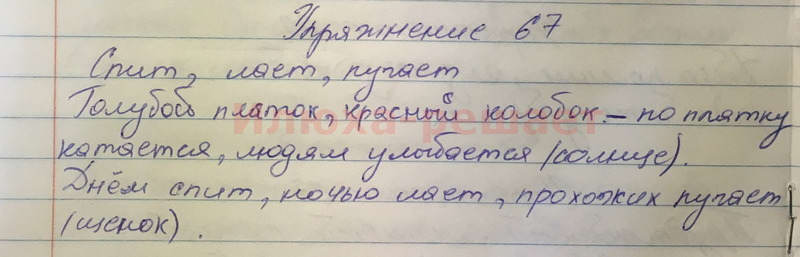 Упражнение 67
Спит, лает, пугает
Голубой платок, красный колобок – по платку
катается, людям улыбается (солнце).
Днём спит, ночью лает, прохожих пугает
(щенок).
илюха-решает